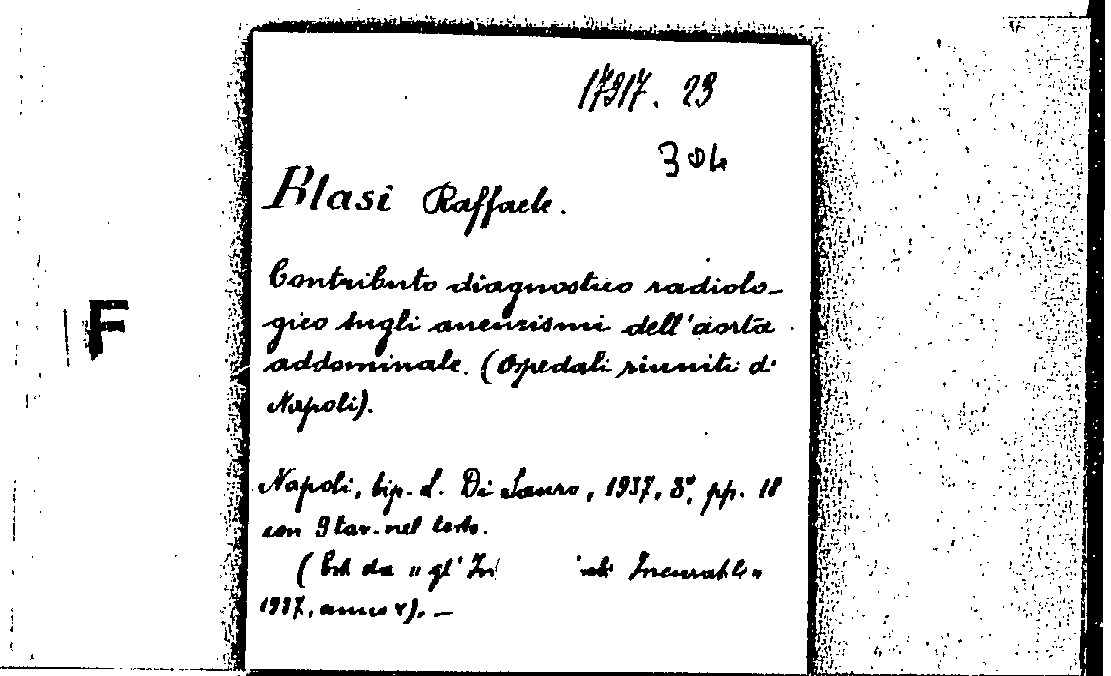 17917. 23
304
Blasi Raffaele.
Contributo diagnostico radiolo-
gico sugli aneurismi dell'aorta
addominale. (Ospedali riuniti di
Napoli).
F
Napoli, tip. L. Di Lauro, 1937, 8°, pp. 18
con 9 tav. nel testo.
(Estr. da "gl' Incurabili"
1937, anno